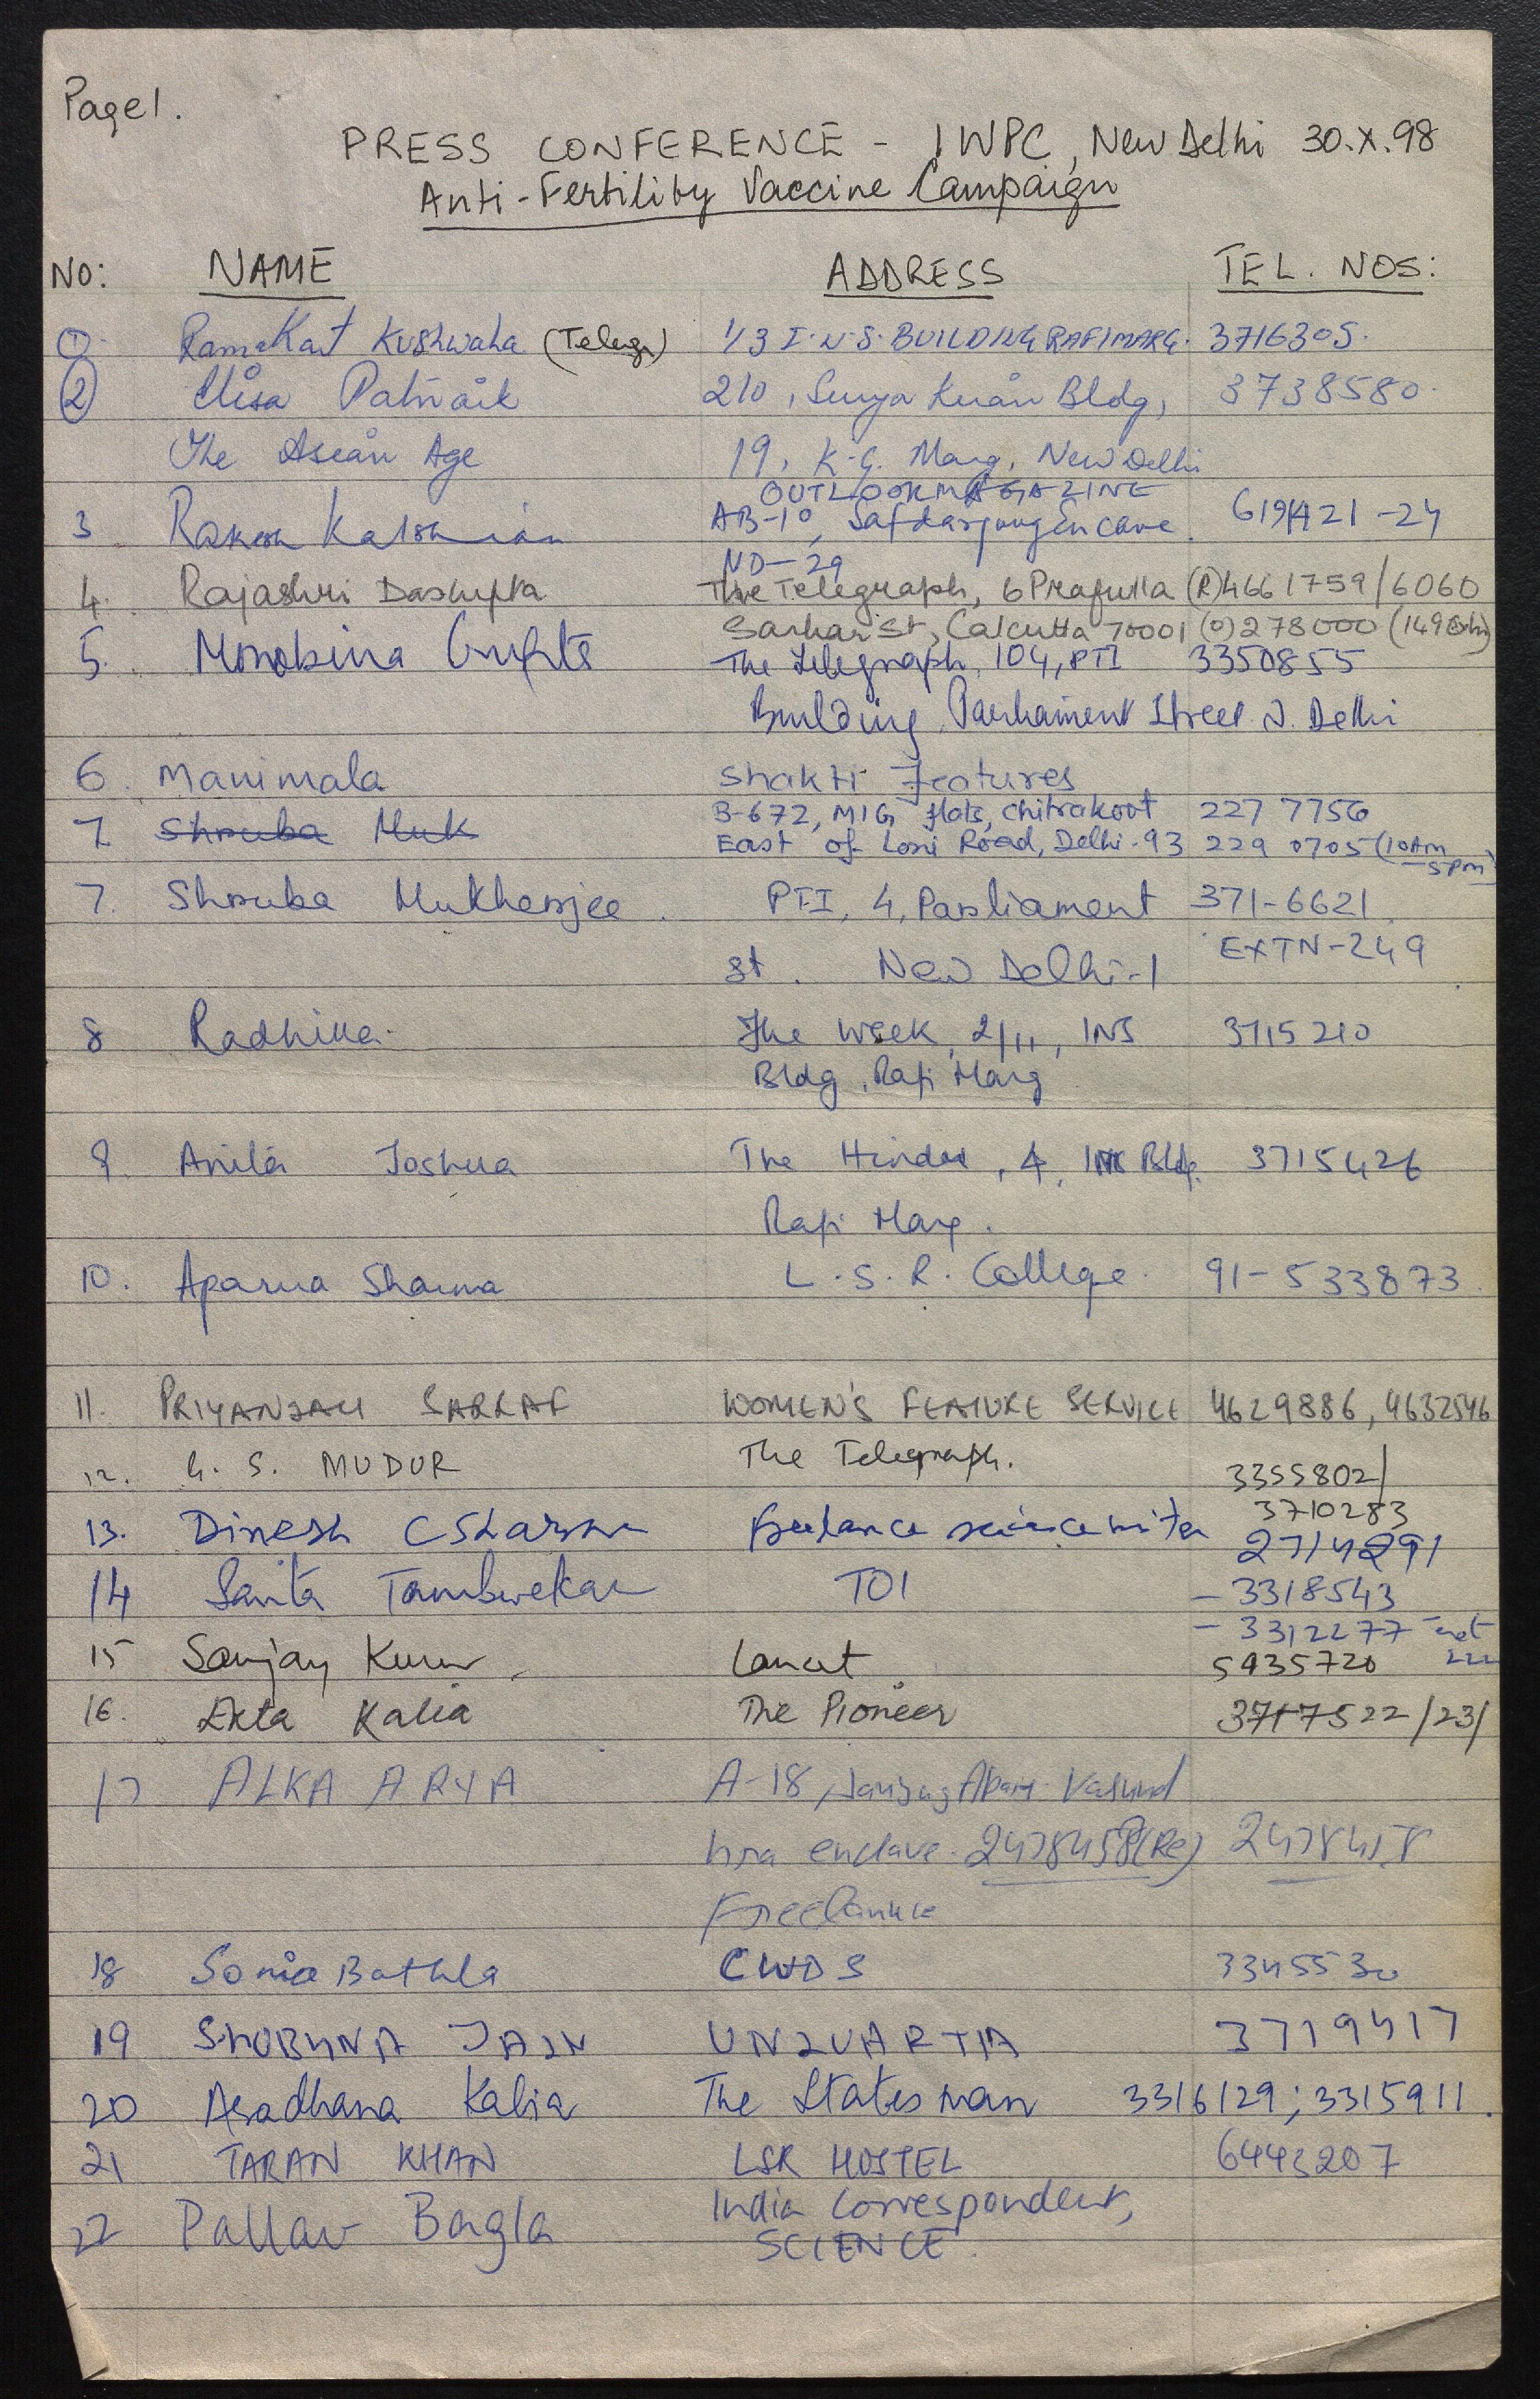 Page 1.
PRESS CONFERENCE - IWPC, New Delhi 30.X.98
Anti-Fertility Vaccine Campaign
NO: NAME ADDRESS TEL. NOS:
1. Ramakant Kushwaha 1/3 I.N.S. BUILDING RAFI MARG. 3716305.
2 Elisa Patnaik 210, Surya Kiran Bldg, 3738580
The Asian Age 19, K.G. Marg, New Delhi
OUTLOOK MAGAZINE
3 Rakesh Kalshian AB-10, Safdarjung Encave 6191421-24
ND-29
4. Rajashri Dasgupta The Telegraph, 6 Prafulla (R) 4661759/6060
Sarkar St, Calcutta 70001 (O) 278000 (149
5. Monobina Gupta The Telegraph, 104, PTI 3350855
Building, Parliament Street N. Delhi
6. Manimala Shakti Features
7 Shruba Muk B-672, MIG flats, Chitrakoot 227 7756
East of Loni Road, Delhi-93 229 0705 (10 Am
-5 pm)
7. Shruba Mukherjee. PTI, 4, Parliament 371-6621
St. New Delhi-1 EXTN-249
8 Radhika The Week, 2/11, INS 3715210
Bldg, Rafi Marg
9. Anita Joshua The Hindu, 4, INS Bldg. 3715426
Rafi Marg.
10. Aparna Sharma L.S.R. College. 91-533873.
11. PRIYANJALI SARKAF WOMEN'S FEATURE SERVICE 4629886, 4632546
12. G. S. MUDUR The Telegraph. 3355802/
3710283
13. Dinesh C Sharma freelance science writer 2714291
14 Sarita Tambwekar TOI - 3318543
- 3312277 ext
222
15 Sanjay Kumar Lancet 5935720
16. Ekta Kalia The Pioneer 3717522/23/
17 ALKA ARYA A-18, Janyug Apart Vasund
hra enclave. 2478458 (Re) 2478458
Freelance
18 Sonia Bathla CWDS 3345530
19 SHOBHNA JAIN UNIVARTA 3719417
20 Aradhana Kalia The Statesman 3316129; 3315911.
21 TARAN KHAN LSR HOSTEL 6443207
22 Pallav Bagla India Correspondent,
SCIENCE.